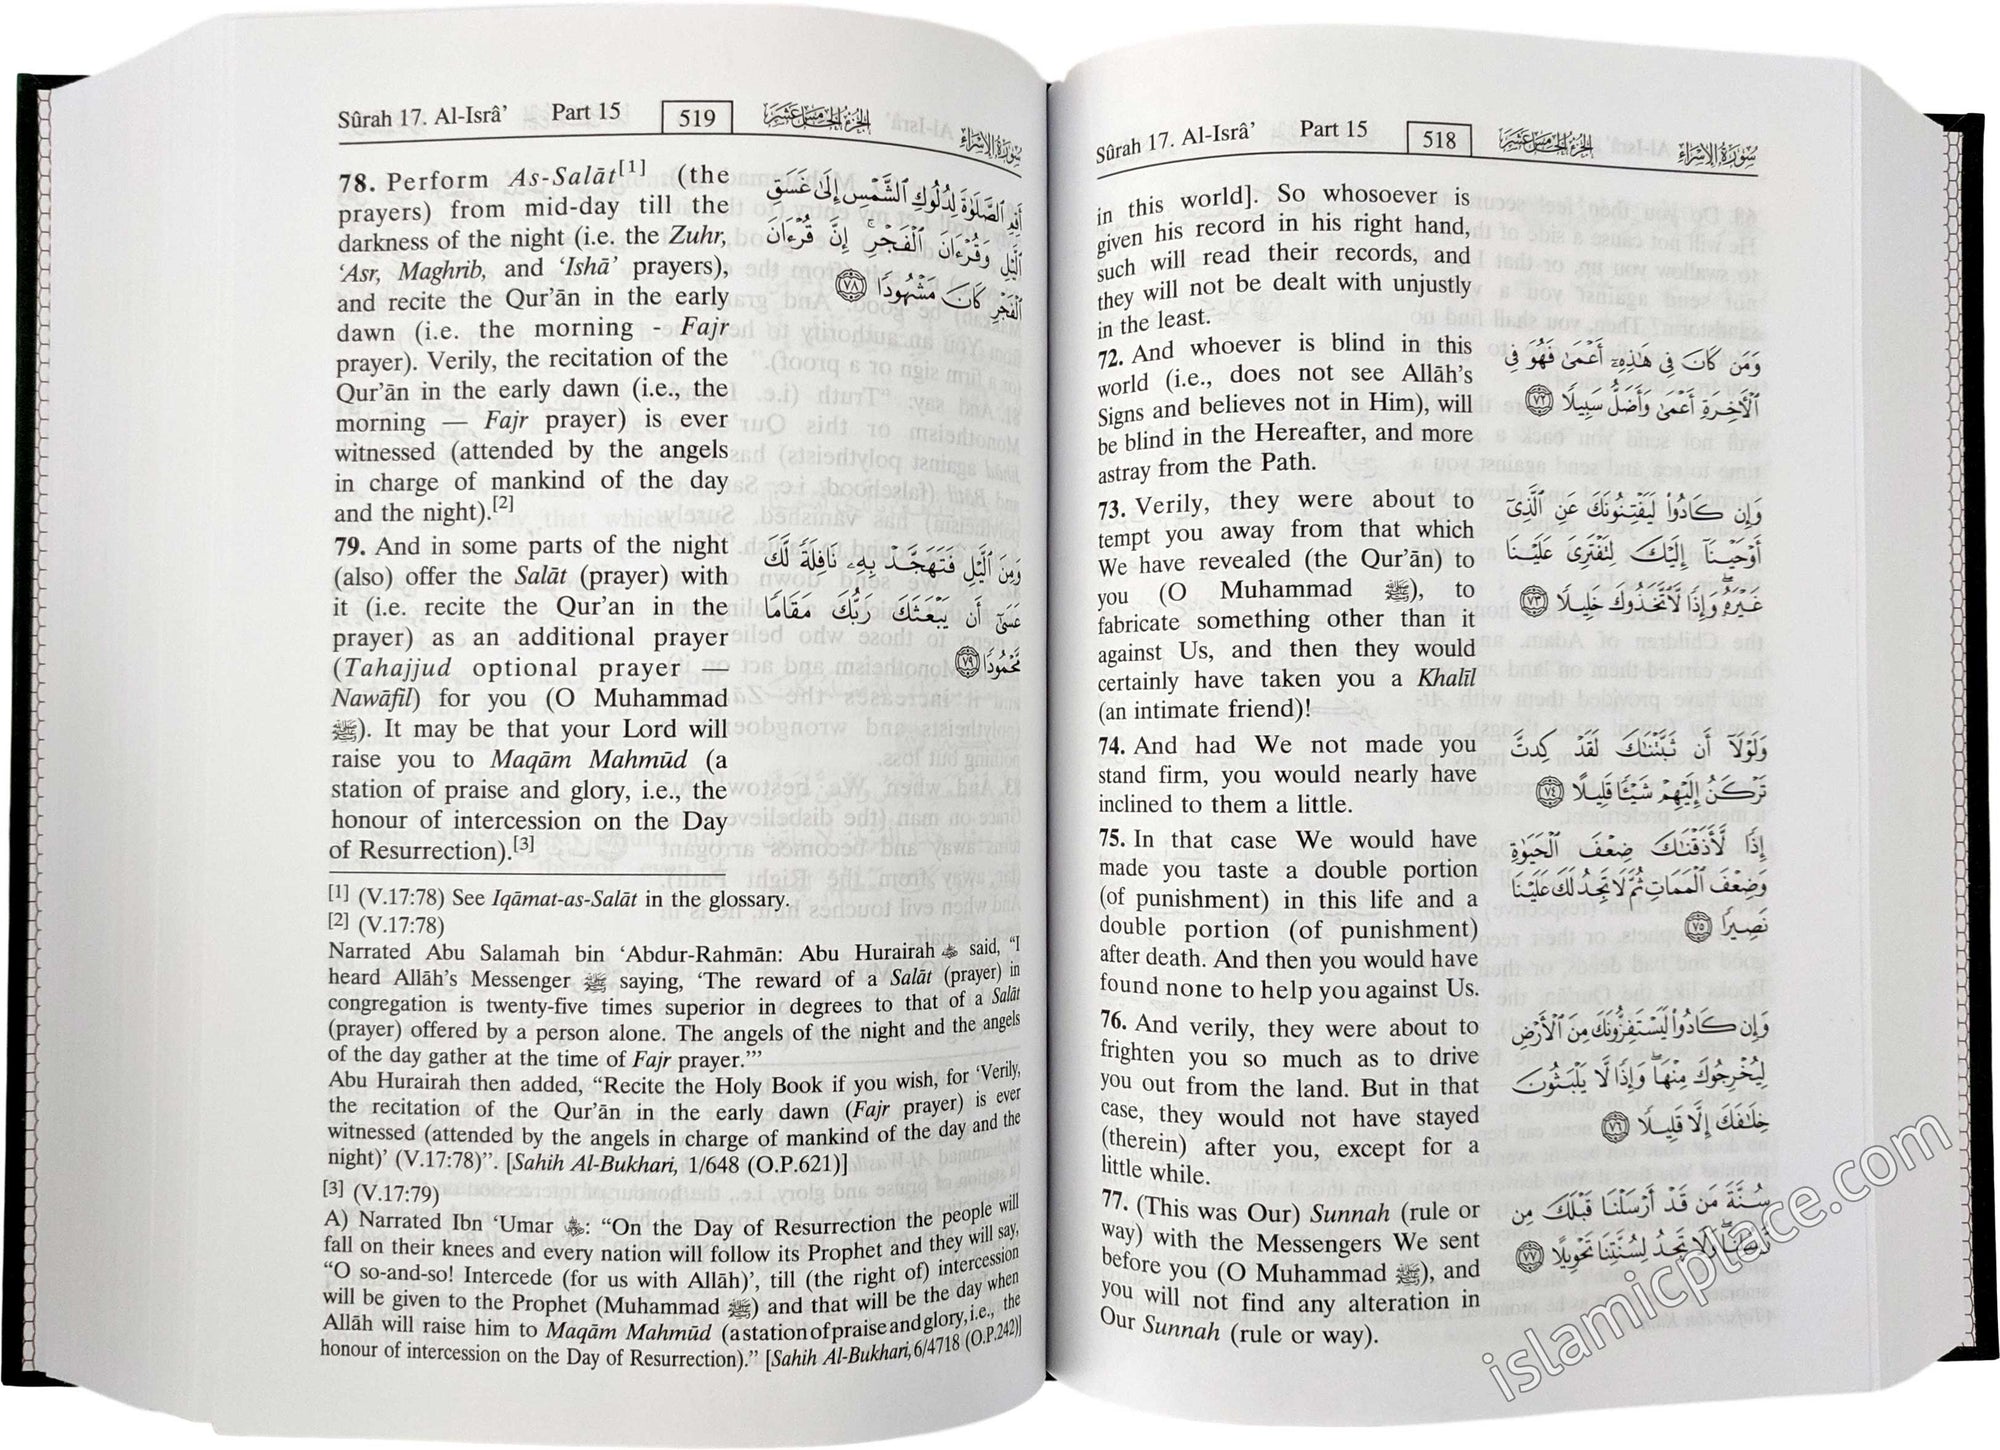 Sûrah 17. Al-Isrâ’ Part 15 518 الجزء الخامس عشر سورة الإسراء
in this world]. So whosoever is
given his record in his right hand,
such will read their records, and
they will not be dealt with unjustly
in the least.
72. And whoever is blind in this
world (i.e., does not see Allāh’s
Signs and believes not in Him), will
be blind in the Hereafter, and more
astray from the Path.
وَمَن كَانَ فِي هَٰذِهِۦٓ أَعْمَىٰ فَهُوَ فِي
ٱلْأَخِرَةِ أَعْمَىٰ وَأَضَلُّ سَبِيلًا ٧٢
73. Verily, they were about to
tempt you away from that which
We have revealed (the Qur’ān) to
you (O Muhammad ﷺ), to
fabricate something other than it
against Us, and then they would
certainly have taken you a Khalīl
(an intimate friend)!
وَإِن كَادُوا۟ لَيَفْتِنُونَكَ عَنِ ٱلَّذِىٓ
أَوْحَيْنَآ إِلَيْكَ لِتَفْتَرِىَ عَلَيْنَا
غَيْرَهُۥ ۖ وَإِذًا لَّٱتَّخَذُوكَ خَلِيلًا ٧٣
74. And had We not made you
stand firm, you would nearly have
inclined to them a little.
وَلَوْلَآ أَن ثَبَّتْنَٰكَ لَقَدْ كِدتَّ
تَرْكَنُ إِلَيْهِمْ شَيْـًٔا قَلِيلًا ٧٤
75. In that case We would have
made you taste a double portion
(of punishment) in this life and a
double portion (of punishment)
after death. And then you would have
found none to help you against Us.
إِذًا لَّأَذَقْنَٰكَ ضِعْفَ ٱلْحَيَوٰةِ
وَضِعْفَ ٱلْمَمَاتِ ثُمَّ لَا تَجِدُ لَكَ عَلَيْنَا
نَصِيرًا ٧٥
76. And verily, they were about to
frighten you so much as to drive
you out from the land. But in that
case, they would not have stayed
(therein) after you, except for a
little while.
وَإِن كَادُوا۟ لَيَسْتَفِزُّونَكَ مِنَ ٱلْأَرْضِ
لِيُخْرِجُوكَ مِنْهَا ۖ وَإِذًا لَّا يَلْبَثُونَ
خِلَٰفَكَ إِلَّا قَلِيلًا ٧٦
77. (This was Our) Sunnah (rule or
way) with the Messengers We sent
before you (O Muhammad ﷺ), and
you will not find any alteration in
Our Sunnah (rule or way).
سُنَّةَ مَن قَدْ أَرْسَلْنَا قَبْلَكَ مِن
رُّسُلِنَا ۖ وَلَا تَجِدُ لِسُنَّتِنَا تَحْوِيلًا ٧٧
Sûrah 17. Al-Isrâ’ Part 15 519 الجزء الخامس عشر سورة الإسراء
78. Perform As-Salāt[1] (the
prayers) from mid-day till the
darkness of the night (i.e. the Zuhr,
‘Asr, Maghrib, and ‘Ishā’ prayers),
and recite the Qur’ān in the early
dawn (i.e. the morning - Fajr
prayer). Verily, the recitation of the
Qur’ān in the early dawn (i.e., the
morning — Fajr prayer) is ever
witnessed (attended by the angels
in charge of mankind of the day
and the night).[2]
أَقِمِ ٱلصَّلَوٰةَ لِدُلُوكِ ٱلشَّمْسِ إِلَىٰ غَسَقِ
ٱلَّيْلِ وَقُرْءَانَ ٱلْفَجْرِ ۖ إِنَّ قُرْءَانَ
ٱلْفَجْرِ كَانَ مَشْهُودًا ٧٨
79. And in some parts of the night
(also) offer the Salāt (prayer) with
it (i.e. recite the Qur’an in the
prayer) as an additional prayer
(Tahajjud optional prayer —
Nawāfil) for you (O Muhammad
ﷺ). It may be that your Lord will
raise you to Maqām Mahmūd (a
station of praise and glory, i.e., the
honour of intercession on the Day
of Resurrection).[3]
وَمِنَ ٱلَّيْلِ فَتَهَجَّدْ بِهِۦ نَافِلَةً لَّكَ
عَسَىٰٓ أَن يَبْعَثَكَ رَبُّكَ مَقَامًا
مَّحْمُودًا ٧٩
[1] (V.17:78) See Iqāmat-as-Salāt in the glossary.
[2] (V.17:78)
Narrated Abu Salamah bin ‘Abdur-Rahmān: Abu Hurairah said, “I
heard Allāh’s Messenger ﷺ saying, ‘The reward of a Salāt (prayer) in
congregation is twenty-five times superior in degrees to that of a Salāt
(prayer) offered by a person alone. The angels of the night and the angels
of the day gather at the time of Fajr prayer.’”
Abu Hurairah then added, “Recite the Holy Book if you wish, for ‘Verily,
the recitation of the Qur’ān in the early dawn (Fajr prayer) is ever
witnessed (attended by the angels in charge of mankind of the day and the
night)’ (V.17:78)”. [Sahih Al-Bukhari, 1/648 (O.P.621)]
[3] (V.17:79)
A) Narrated Ibn ‘Umar : “On the Day of Resurrection the people will
fall on their knees and every nation will follow its Prophet and they will say,
“O so-and-so! Intercede (for us with Allāh)’, till (the right of) intercession
will be given to the Prophet (Muhammad ﷺ) and that will be the day when
Allāh will raise him to Maqām Mahmūd (a station of praise and glory, i.e., the
honour of intercession on the Day of Resurrection).” [Sahih Al-Bukhari, 6/4718 (O.P.242)]
islamicplace.com